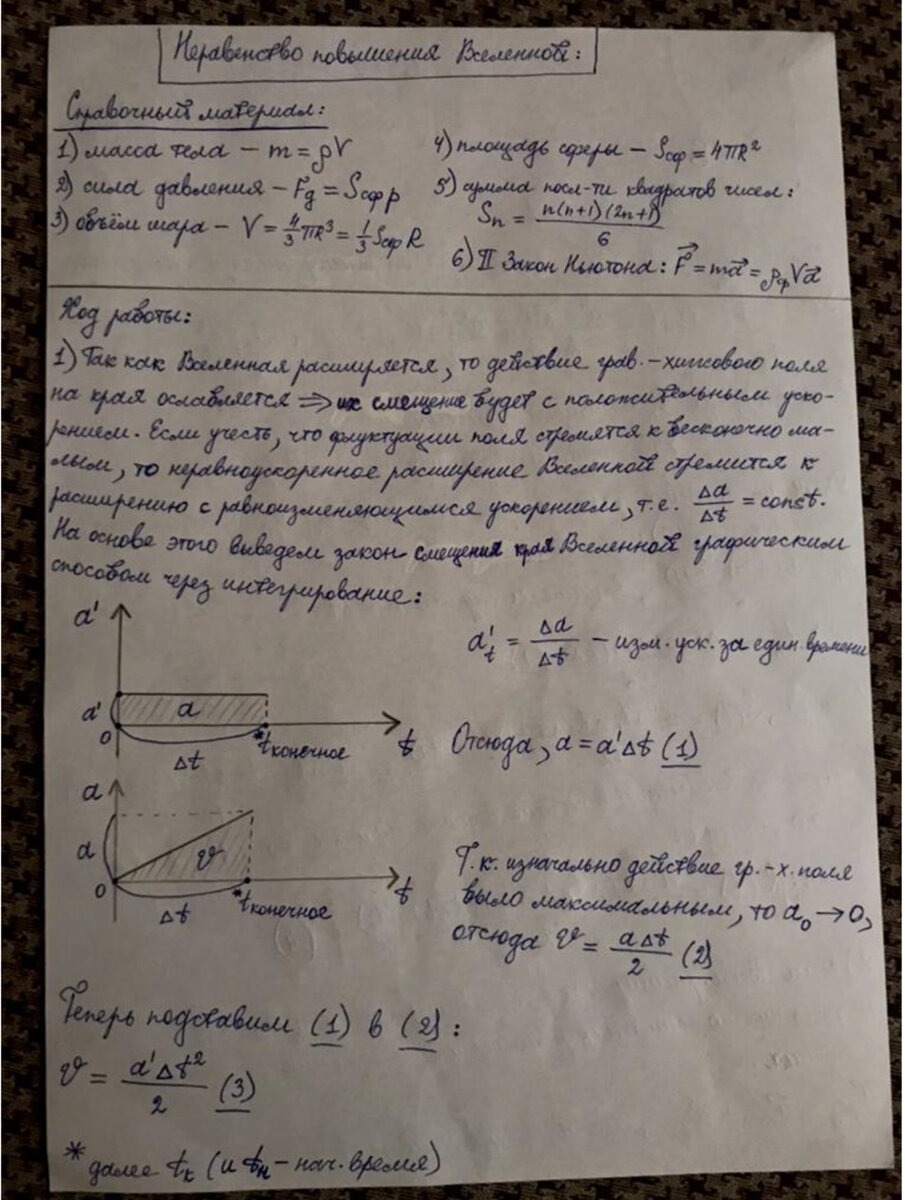 Неравенство повышения Вселенной:
Справочный материал:
1) масса тела – m = ρV
2) сила давления – Fд = Sсф p
3) объём шара – V = 4/3 πR³ = 1/3 Sсф R
4) площадь сферы – Sсф = 4πR²
5) сумма посл-ти квадратов чисел:
Sn = n(n+1)(2n+1)/6
6) II Закон Ньютона: F⃗ = ma⃗ = ρф Va⃗
Ход работы:
1) Так как Вселенная расширяется, то действие грав.-хиггсового поля
на края ослабляется ⇒ их смещение будет с положительным уско-
рением. Если учесть, что флуктуации поля стремятся к бесконечно ма-
лым, то неравноускоренное расширение Вселенной стремится к
расширению с равноизменяющимся ускорением, т.е. Δa/Δt = const.
На основе этого выведем закон смещения края Вселенной графическим
способом через интегрирование:
a'
a'
a
0
Δt
*tконечное
t
a't = Δa/Δt – изм. уск. за един. времени
Отсюда, a = a'Δt (1)
a
a
v
0
Δt
*tконечное
t
Т.к. изначально действие гр.-х. поля
было максимальным, то a₀ → 0,
отсюда v = aΔt/2 (2)
Теперь подставим (1) в (2):
v = a'Δt²/2 (3)
* далее tк (и tн – нач. время)